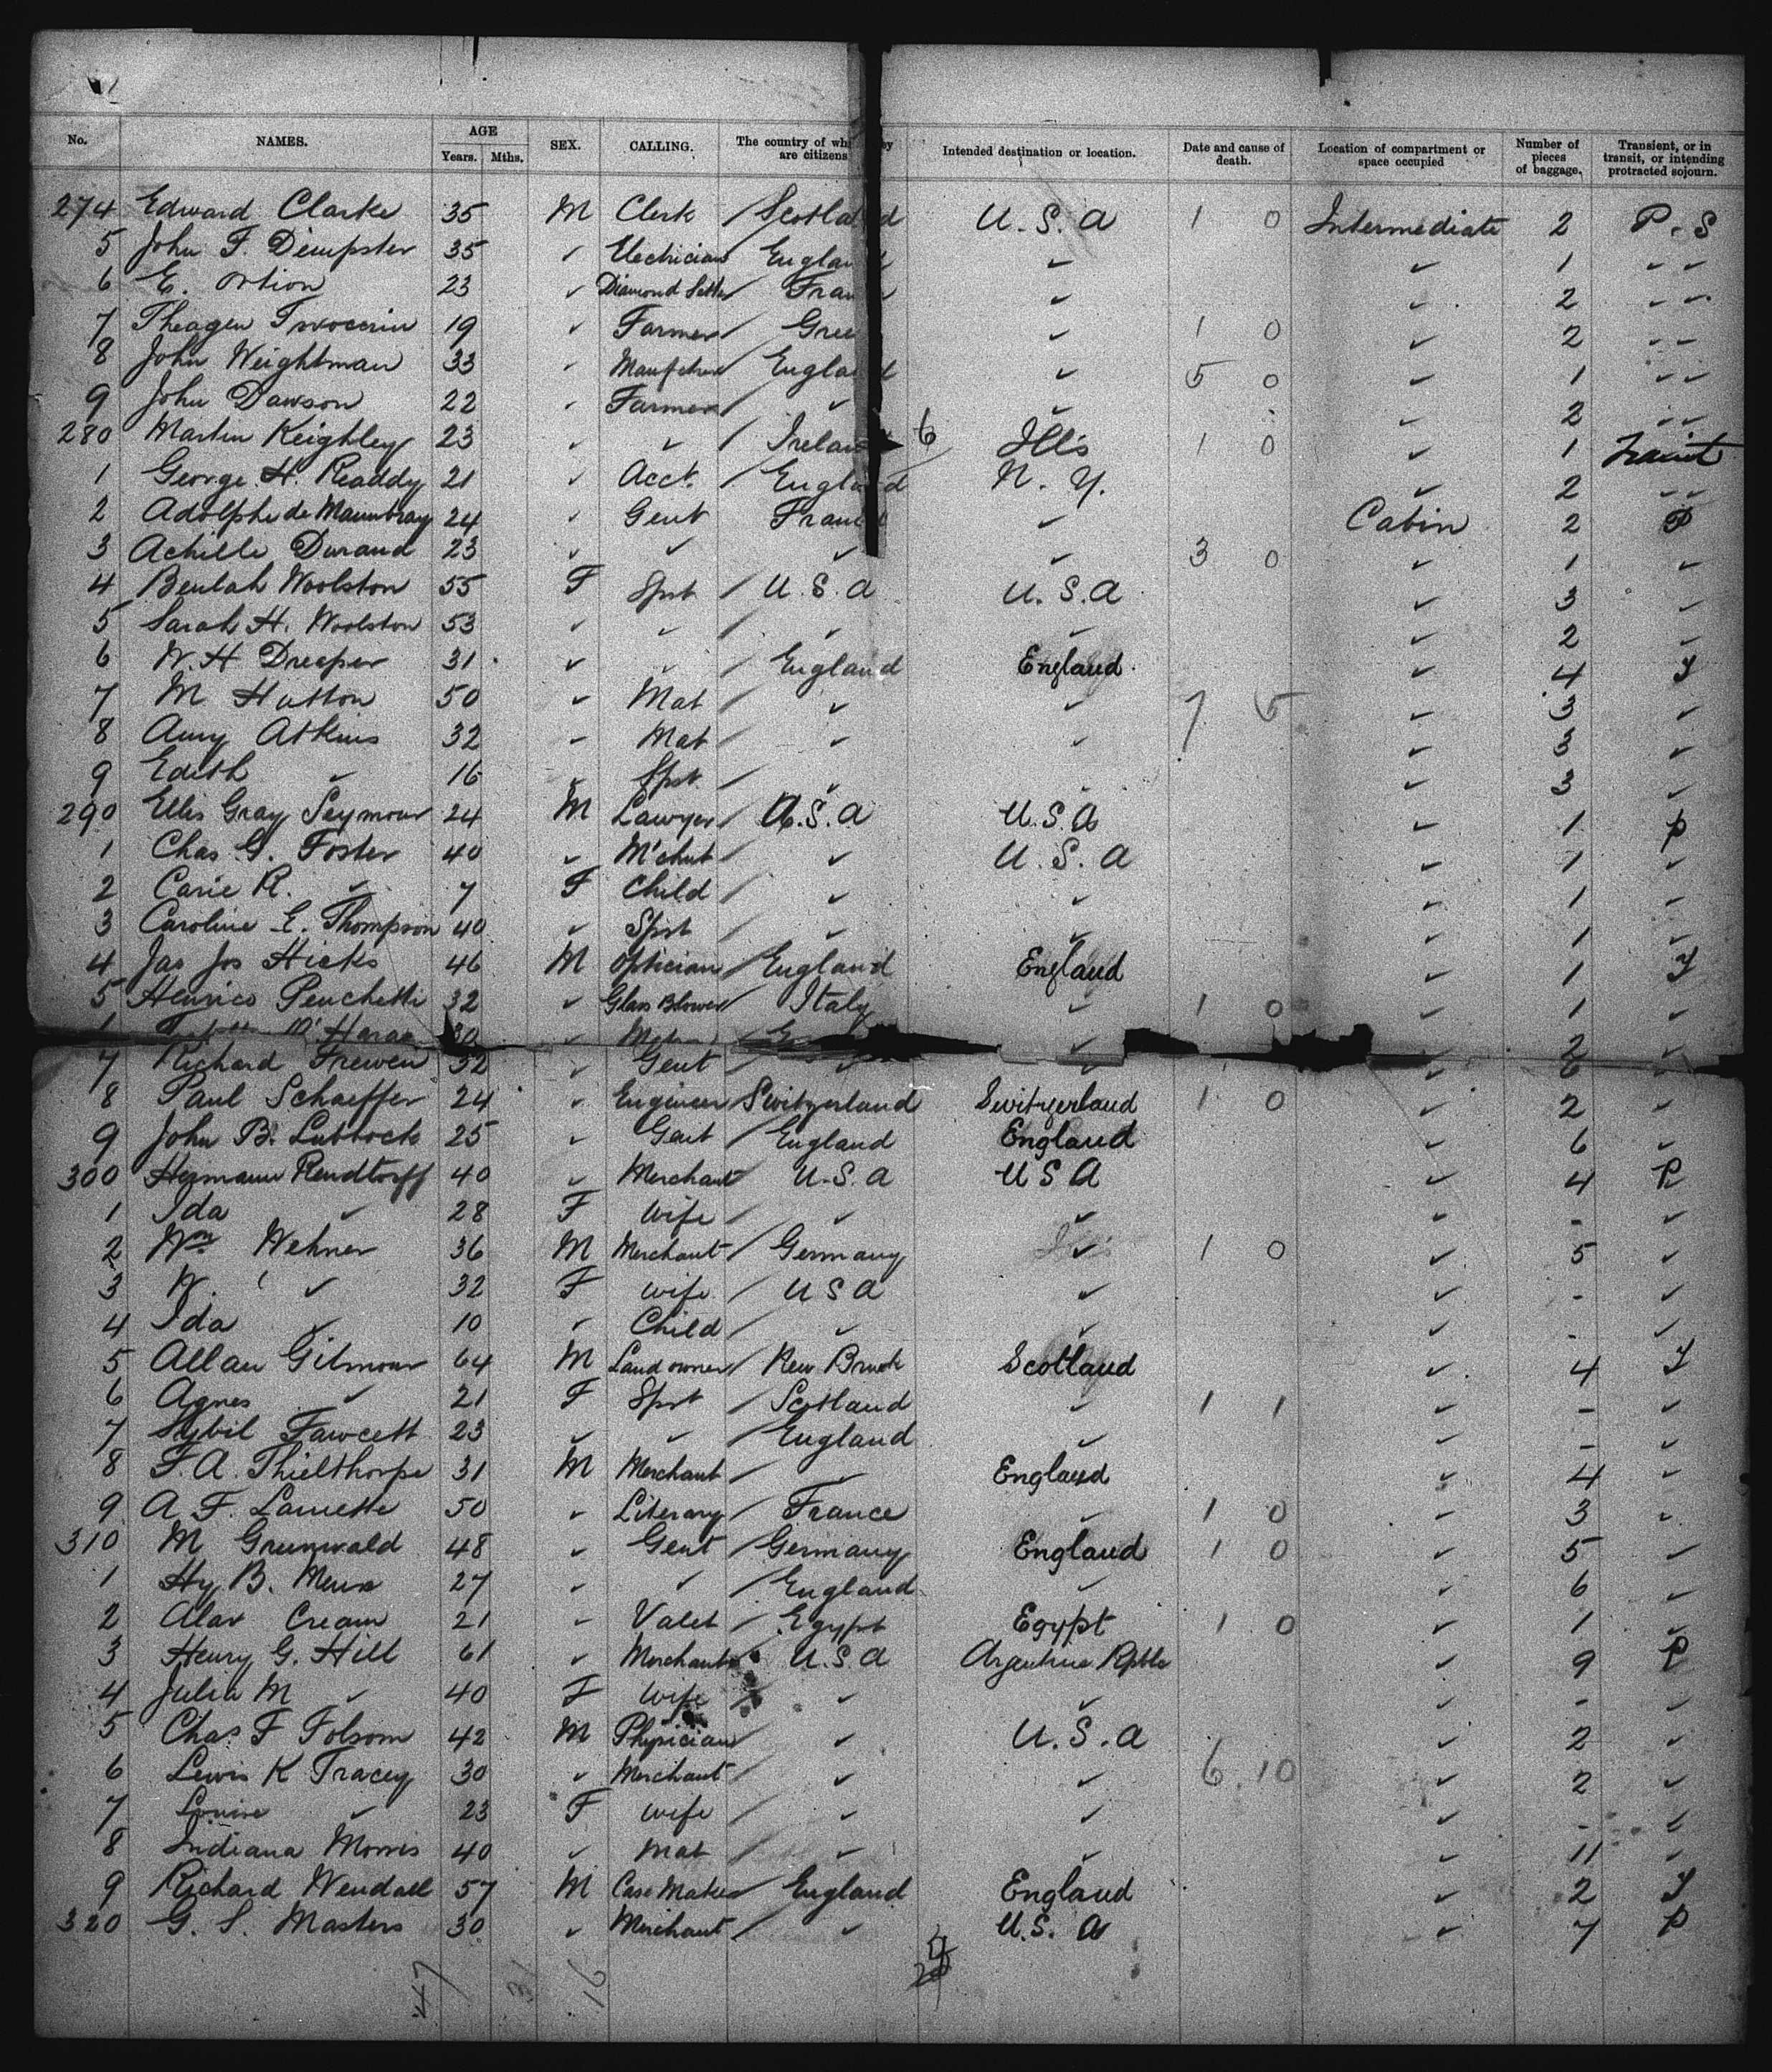 No. NAMES. AGE Years. Mths. SEX. CALLING. The country of wh ey are citizens Intended destination or location. Date and cause of death. Location of compartment or space occupied Number of pieces of baggage. Transient, or in transit, or intending protracted sojourn.
274 Edward Clarke 35 M Clerk / Scotland U.S.A 1 0 Intermediate 2 P.S
5 John F. Dempster 35 ✓ Electrician England ✓ ✓ 1 ✓ ✓
6 E. 23 ✓ Diamond Setter / Fran ✓ ✓ 2 ✓ ✓
7 Theagen 19 ✓ Farmer / Gree ✓ 1 0 ✓ 2 ✓ ✓
8 John Weightman 33 ✓ Manfctrer / England ✓ 5 0 ✓ 1 ✓ ✓
9 John Dawson 22 ✓ Farmer / ✓ ✓ ✓ 2 ✓ ✓
280 Martin Keighley 23 ✓ ✓ / Irelan 6 Ills 1 0 ✓ 1 Transit
1 George H. Readdy 21 ✓ Acct. / England N.Y. ✓ 2 ✓ ✓
2 Adolphe de 24 ✓ Gent France ✓ Cabin 2 P
3 Achille Durand 23 ✓ ✓ ✓ ✓ 3 0 ✓ 1 ✓
4 Beulah Woolston 55 F Spst / U.S.A U.S.A ✓ 3 ✓
5 Sarah H. Woolston 53 ✓ ✓ / ✓ ✓ ✓ 2 ✓
6 W. H Dreaper 31 ✓ ✓ / England England ✓ 4 T
7 M Hutton 50 ✓ Mat / ✓ ✓ 7 5 ✓ 3 ✓
8 Amy Atkins 32 ✓ Mat / ✓ ✓ ✓ 3 ✓
9 Edith ✓ 16 ✓ Spst / ✓ ✓ ✓ 3 ✓
290 Ellis Gray Seymour 24 M Lawyer / U.S.A U.S.A ✓ 1 P
1 Chas. G. Foster 40 ✓ M'chnt / ✓ U.S.A ✓ 1 ✓
2 Carie R. ✓ 7 F Child / ✓ ✓ ✓ 1 ✓
3 Caroline E. Thompson 40 ✓ Spst / ✓ ✓ ✓ 1 ✓
4 Jas Jos Hicks 46 M Optician / England England ✓ 1 T
5 Henrico Penchetti 32 ✓ Glass Blower / Italy ✓ 1 0 ✓ 1 ✓
O'Hara 30 ✓ ✓ 2 ✓
7 Richard Frewen 32 ✓ Gent / ✓ ✓ ✓ 6 ✓
8 Paul Schaeffer 24 ✓ Engineer Switzerland Switzerland 1 0 ✓ 2 ✓
9 John B. Lubbock 25 ✓ Gent / England England ✓ 6 ✓
300 Hermann Rendtorff 40 ✓ Merchant U.S.A U S A ✓ 4 P
1 Ida ✓ 28 F Wife / ✓ ✓ ✓ - ✓
2 Wm Wehner 36 M Merchant / Germany ✓ 1 0 ✓ 5 ✓
3 W. ✓ 32 F Wife / U S A ✓ ✓ - ✓
4 Ida ✓ 10 ✓ Child / ✓ ✓ ✓ - ✓
5 Allan Gilmour 64 M Land owner / New Brnsk Scotland ✓ 4 T
6 Agnes ✓ 21 F Spst / Scotland ✓ 1 1 ✓ - ✓
7 Sybil Fawcett 23 ✓ ✓ / England ✓ ✓ - ✓
8 F. A. Thielthorpe 31 M Merchant / ✓ England ✓ 4 ✓
9 A. F. 50 ✓ Literary / France ✓ 1 0 ✓ 3 ✓
310 M Grunwald 48 ✓ Gent / Germany England 1 0 ✓ 5 ✓
1 Hy. B. Meux 27 ✓ ✓ / England ✓ ✓ 6 ✓
2 Alav Cream 21 ✓ Valet / Egypt Egypt 1 0 ✓ 1 ✓
3 Henry G. Hill 61 ✓ Merchant U.S.A Argentine Rpblc ✓ 9 P
4 Julia M ✓ 40 F Wife / ✓ ✓ ✓ - ✓
5 Chas F Folsom 42 M Physician / ✓ U.S.A ✓ 2 ✓
6 Lewis K Tracey 30 ✓ Merchant / ✓ ✓ 6 10 ✓ 2 ✓
7 Louise ✓ 23 F Wife / ✓ ✓ ✓ - ✓
8 Indiana Morris 40 ✓ Mat / ✓ ✓ ✓ 11 ✓
9 Richard Wendall 57 M Case Maker England England ✓ 2 T
320 G. S. Masters 30 ✓ Merchant / ✓ U.S.A ✓ 7 P
47 31 16